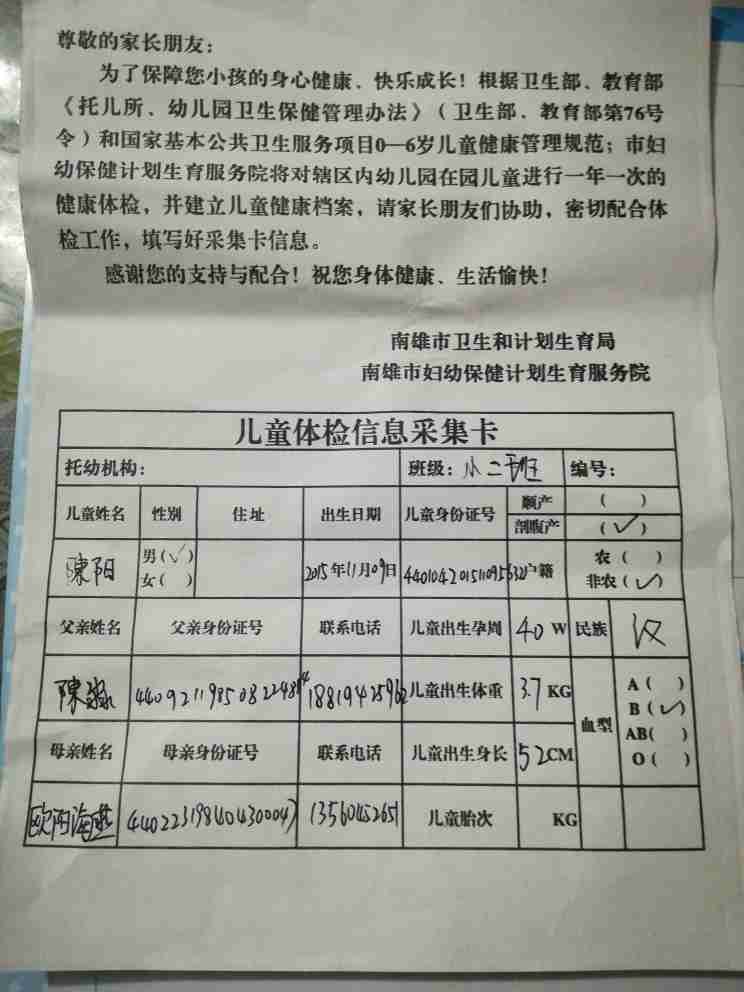 尊敬的家长朋友：
为了保障您小孩的身心健康、快乐成长！根据卫生部、教育部
《托儿所、幼儿园卫生保健管理办法》（卫生部、教育部第76号
令）和国家基本公共卫生服务项目0—6岁儿童健康管理规范；市妇
幼保健计划生育服务院将对辖区内幼儿园在园儿童进行一年一次的
健康体检，并建立儿童健康档案，请家长朋友们协助，密切配合体
检工作，填写好采集卡信息。
感谢您的支持与配合！祝您身体健康、生活愉快！
南雄市卫生和计划生育局
南雄市妇幼保健计划生育服务院
儿童体检信息采集卡
托幼机构： 班级：小二班 编号：
儿童姓名 性别 住址 出生日期 儿童身份证号 顺产 （ ）
剖腹产 （✓）
陳阳 男（✓） 2015年11月09日 户籍 农（ ）
女（ ） 非农（✓）
父亲姓名 父亲身份证号 联系电话 儿童出生孕周 40 W 民族 汉
陳 儿童出生体重 3.7 KG 血型 A（ ）
B（✓）
AB（ ）
O（ ）
母亲姓名 母亲身份证号 联系电话 儿童出生身长 52 CM
欧阳海燕 440223198404300047 13560452651 儿童胎次 KG